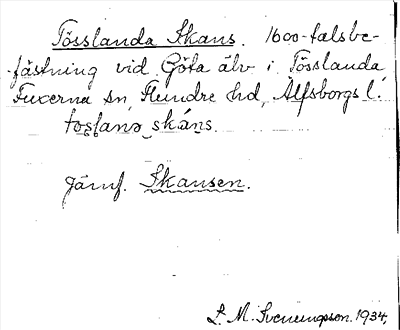 Tösslanda Skans. 1600-talsbe-
fästning vid Göta älv i Tösslanda
Fuxerna sn, Flundre hd, Älfsborgs l.
tos̩lanə skáns.
Jämf. Skansen.
L. M. Svenungsson. 1934,